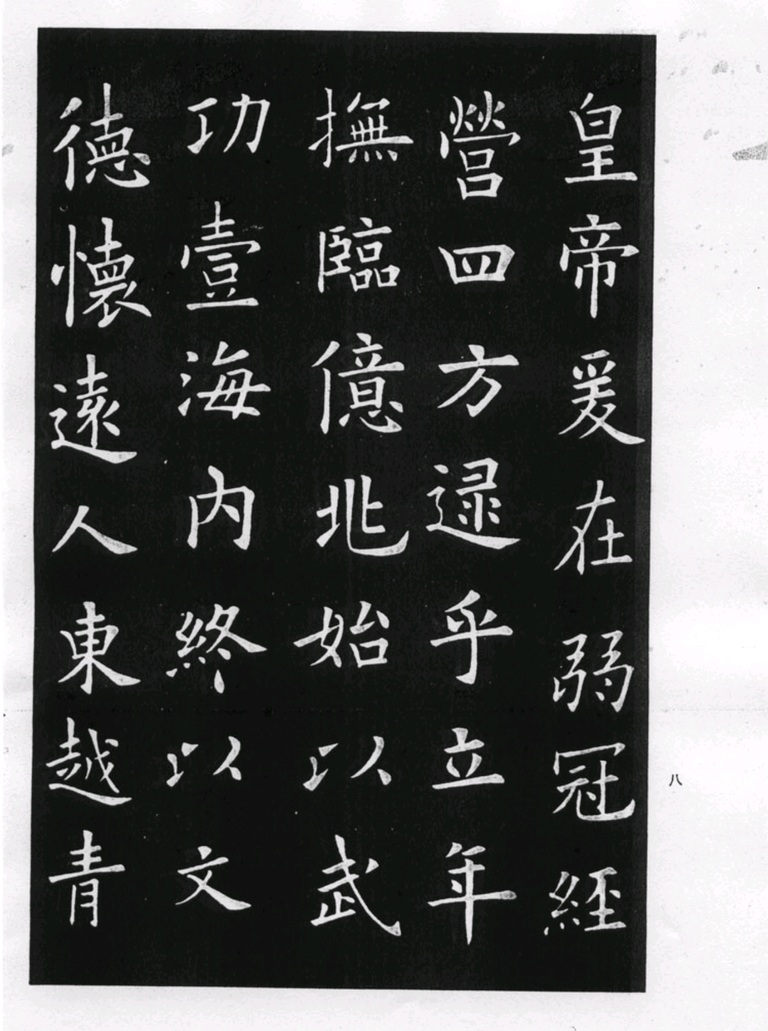 皇帝爰在弱冠經
營四方逯乎立年
撫臨億兆始以武
功壹海內終以文
德懷遠人東越青
八